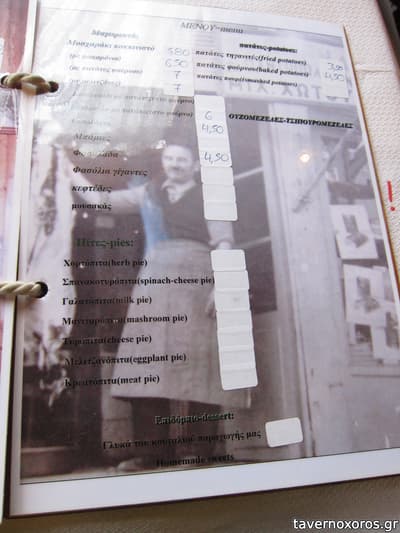 ΜΕΝΟΥ-menu
Μαγειρευτά:
Μοσχαράκι κοκκινιστό 5,80
6,50
7
7
6
4,50
Μπάμιες
Φασολάδα 4,50
Φασόλια γίγαντες
κεφτέδες
μουσακάς
Πίτες-pies:
Χορτόπιτα(herb pie)
Σπανακοτυρόπιτα(spinach-cheese pie)
Γαλατόπιτα(milk pie)
Μανιταρόπιτα(mashroom pie)
Τυρόπιτα(cheese pie)
Μελιτζανόπιτα(eggplant pie)
Κρεατόπιτα(meat pie)
Επιδόρπιο-dessert:
Γλυκά του κουταλιού παραγωγής μας
Homemade sweets
πατάτες-potatoes:
πατάτες τηγανιτές(fried potatoes) 3,50
πατάτες φούρνου(baked potatoes) 4,50
πατάτες πουρέ(smashed potatoes)
ΟΥΖΟΜΕΖΕΔΕΣ-ΤΣΙΠΟΥΡΟΜΕΖΕΔΕΣ
tavernoxoros.gr